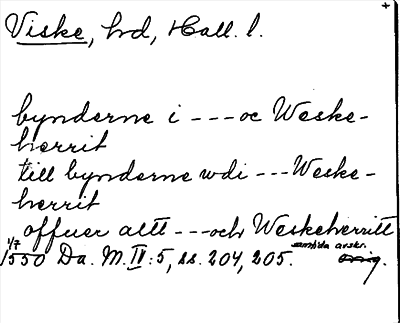 +
Viske, hd, Hall. l.
bynderne i --- oc Weske-
herrit
till bynderne wdi --- Weske-
herrit
offuer altt --- och Weskeherritt
1/7 samtida avskr.
1550 Da. M. IV: 5, ss. 204, 205. orig.